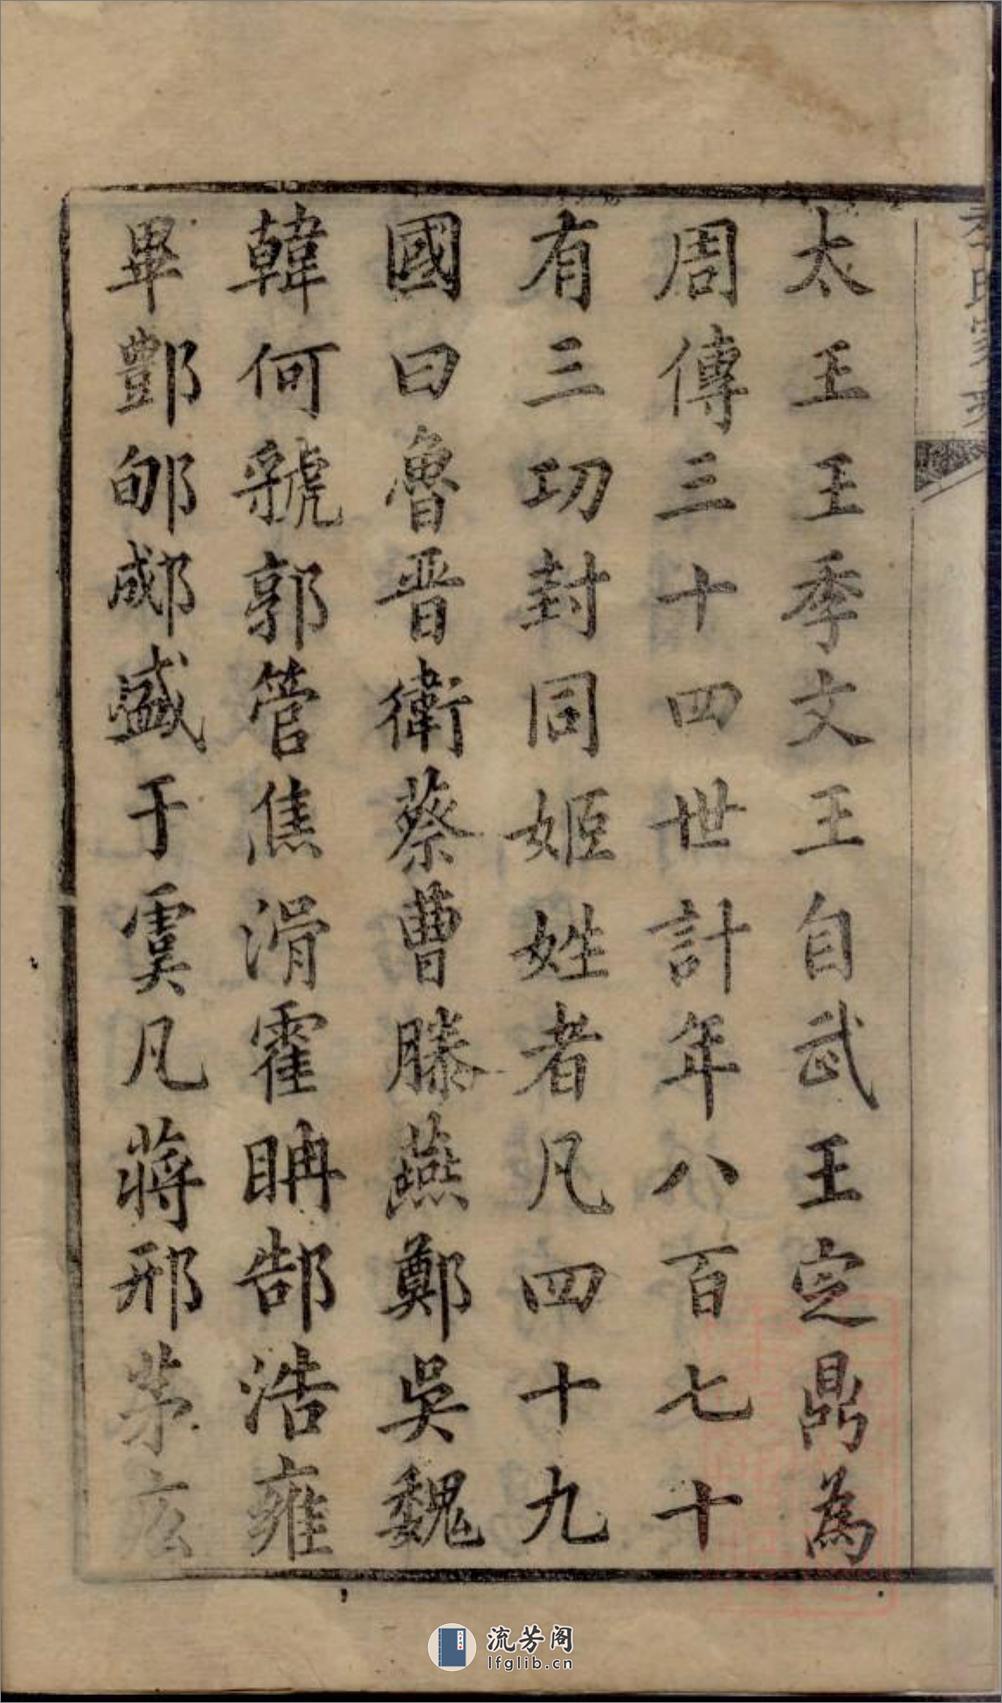 太王王季文王自武王定鼎為
周傳三十四世計年八百七十
有三功封同姬姓者凡四十九
國曰魯晋衛蔡曹滕燕鄭吳魏
韓何虢郭管焦滑霍聃郜浩雍
畢酆郇郕盛于虞凡蔣邢茅
流芳阁
lfglib.cn